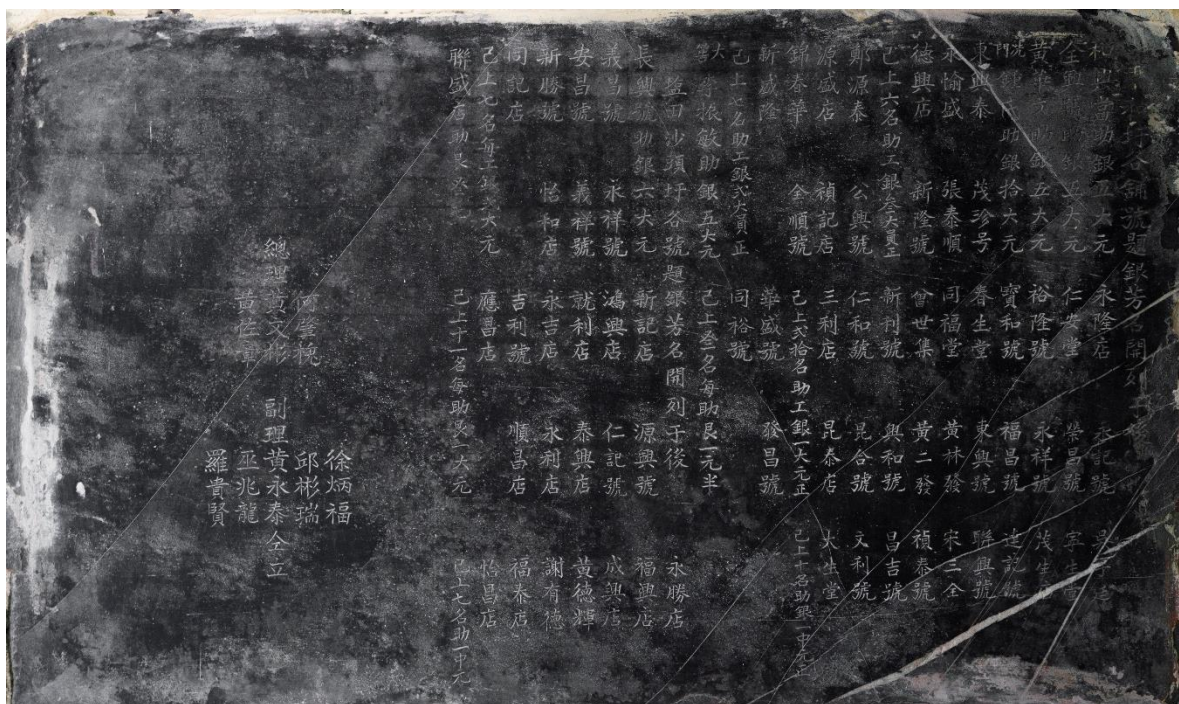 各舖號題銀芳名開列
號助銀五大元 永隆店 永記號
助銀五大元 仁安堂 榮昌號 生堂
黃華 助銀五大元 裕隆號 永祥號 茂生
助銀拾六元 寶和號 福昌號 達記號
東興泰 茂珍号 春生堂 東興號 聯興號
永愉盛 張泰順 同福堂 黃林發 宋三全
德興店 新隆號 曾世集 黃二發 禎泰號
已上六名助工銀叁大員正 新利號 興和號 昌吉號
鄭源泰 公興號 仁和號 昆合號 文利號
源盛店 禎記店 三利店 昆泰店 大生堂
錦春華 全順號 己上弍拾名助工銀一大元正 己上十名助銀一中元正
新盛隆 華盛號 發昌號
己上七名助工銀弍大員正 同裕號
李振敏助銀五大元 己上叁名每助艮一元半
鹽田沙頭圩各號題銀芳名開列于後 永勝店
長興號助銀六大元 新記店 源興號 福興店
義昌號 永祥號 鴻興店 仁記號 成興店
安昌號 義祥號 就利店 泰興店 黃德輝
新勝號 怡和店 永吉店 永利店 謝有德
同記店 吉利號 順昌店 福泰店
己上七名每工銀弍大元 應昌店 怡昌店
聯盛店助艮 己上十一名每助艮一大元 己上七名助一中元
徐炳福
何肇槐 邱彬瑞
總理黃文彬 副理黃永泰仝立
黃性 巫兆龍
羅貴賢